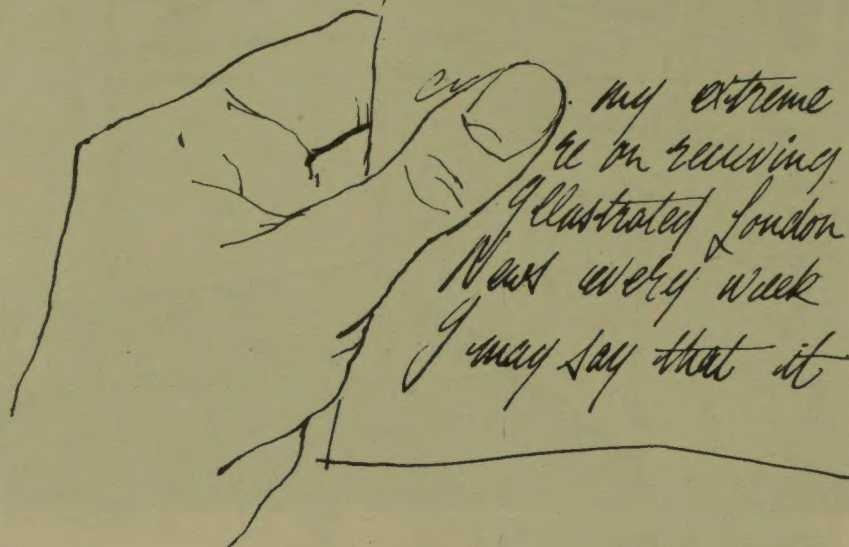 my extreme
re on receiving
Illustrated London
News every week
I may say that it